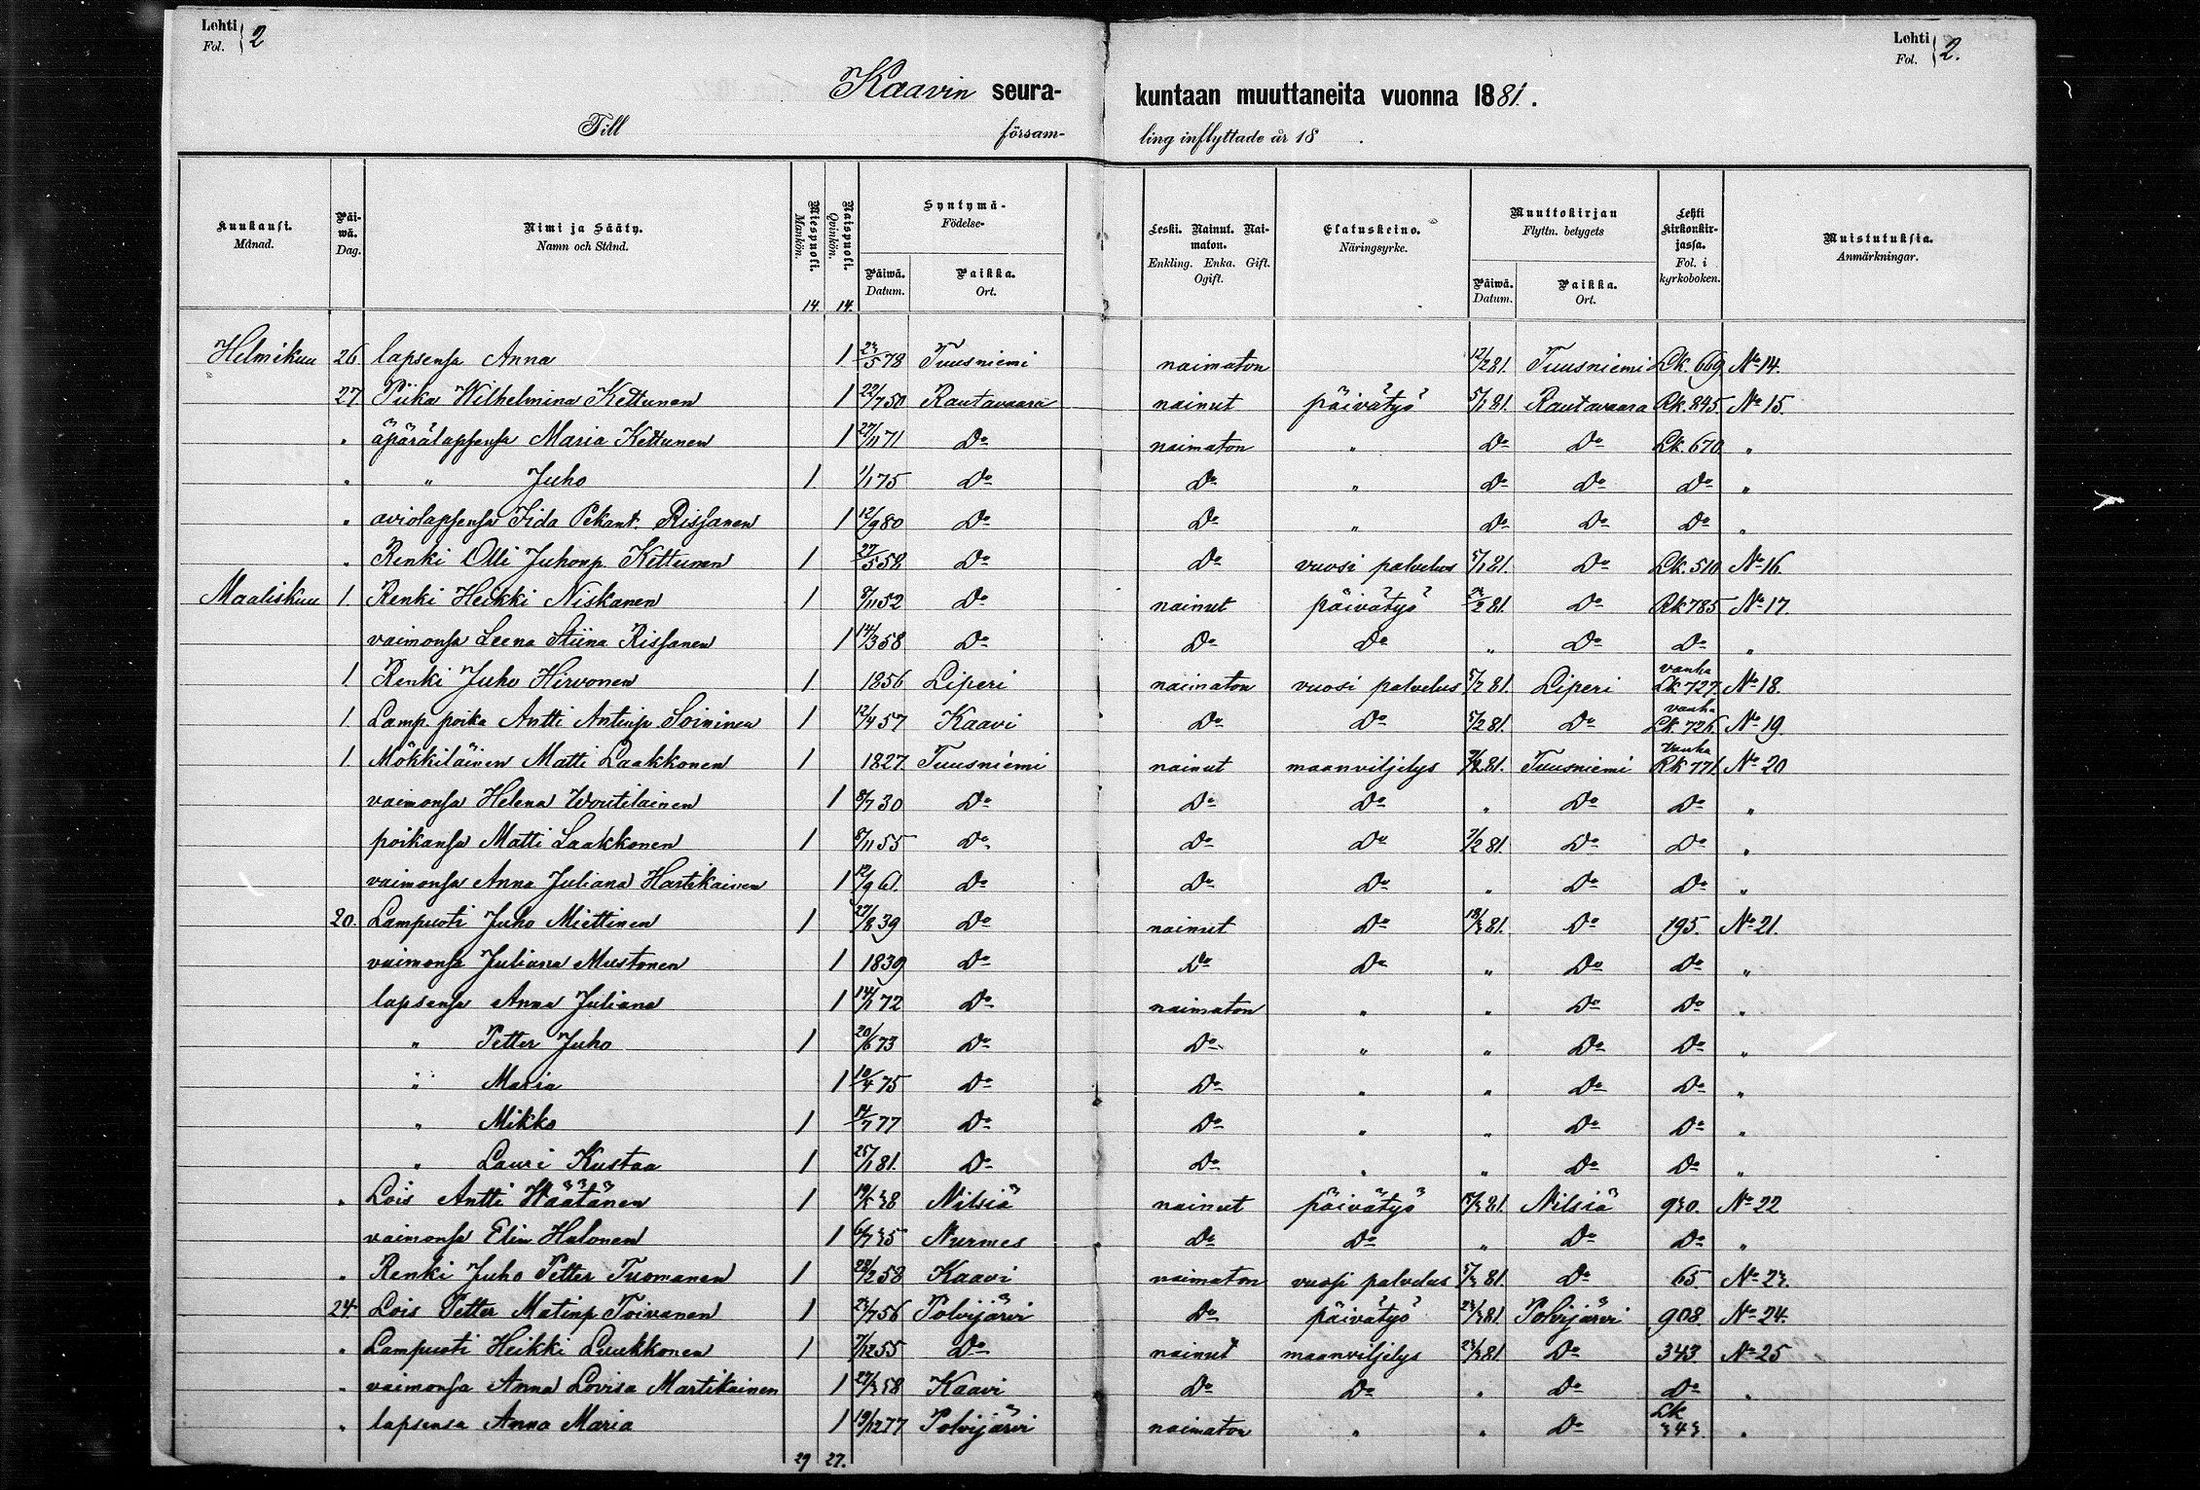 Lehti Fol. } 2
Lehti Fol. } 2.
Kaavin seura-kuntaan muuttaneita vuonna 1881.
Till församling inflyttade år 18 .
Kuukausi. Månad. | Päiwä. Dag. | Nimi ja Sääty. Namn och Stånd. | Miespuoli. Mankön. | Naispuoli. Qvinkön. | Syntymä- Födelse- Päiwä. Datum. | Paikka. Ort. | Leski. Nainut. Naimaton. Enkling. Enka. Gift. Ogift. | Elatuskeino. Näringsyrke. | Muuttokirjan Flyttn. betygets Päiwä. Datum. | Paikka. Ort. | Lehti kirkonkirjassa. Fol. i kyrkoboken. | Muistutuksia. Anmärkningar.
14. 14.
Helmikuu 26 lapsensa Anna 1 23/5 78 Tuusniemi naimaton 12/2 81. Tuusniemi Lk. 669 No 14.
27 Piika Wilhelmina Kettunen 1 22/7 50 Rautavaara nainut päivätyö 5/1 81. Rautavaara Rk. 845 No 15.
" äpärälapsensa Maria Kettunen 1 27/11 71 Do naimaton " Do Do Lk. 670 "
" " Juho 1. 1/1 75 Do Do " Do Do Do "
" aviolapsensa Iida Pekant. Rissanen 1 12/9 80 Do Do " Do Do Do "
" Renki Olli Juhonp. Kettunen 1 27/5 58 Do Do vuosi palvelus 5/1 81. Do Lk. 510 No 16.
Maaliskuu 1. Renki Heikki Niskanen 1 8/11 52 Do nainut päivätyö 22/2 81. Do Rk 785 No 17.
vaimonsa Leena Stiina Rissanen 1 14/3 58 Do Do Do " Do Do "
1. Renki Juho Hirvonen 1 1856 Liperi naimaton vuosi palvelus 5/2 81. Liperi vanha Lk 727 No 18.
1. Lamp. poika Antti Antinp. Soininen 1 12/4 57 Kaavi Do Do 5/2 81. Do vanha Lk 726 No 19.
1 Mökkiläinen Matti Laakkonen 1 1827 Tuusniemi nainut maanviljelys 7/2 81. Tuusniemi Vanha Rk 771. No 20
vaimonsa Helena Woutilainen 1 8/7 30 Do Do Do " Do Do "
poikansa Matti Laakkonen 1 8/11 55 Do Do Do 7/2 81. Do Do "
vaimonsa Anna Juliana Hartikainen 1 12/9 61. Do Do Do " Do Do "
20. Lampuoti Juho Miettinen 1 27/8 39 Do nainut Do 18/3 81. Do 195. No 21.
vaimonsa Juliana Mustonen 1 1839 Do Do Do " Do Do "
lapsensa Anna Juliana 1 14/1 72 Do naimaton " " Do Do "
" Petter Juho 1 20/6 73 Do Do " " Do Do "
" Maria 1 10/4 75 Do Do " " Do Do "
" Mikko 1 14/7 77 Do Do " " Do Do "
" Lauri Kustaa 1 25/1 81. Do Do " " Do Do "
" Lois Antti Häätänen 1 38 Nilsiä nainut päivätyö 81. Nilsiä 930. No 22
vaimonsa Elin Halonen 1 6/7 35 Nurmes Do Do " Do Do "
" Renki Juho Petter Tuomanen 1 28/2 58 Kaavi naimaton vuosi palvelus 5/3 81. Do 65. No 23.
24. Lois Petter Matinp Toivanen 1 23/7 56 Polvijärvi Do päivätyö 23/3 81. Polvijärvi 908. No 24.
" Lampuoti Heikki Luukkonen 1 7/12 55 Do nainut maanviljelys 23/3 81 Do 343. No 25
" vaimonsa Anna Lovisa Martikainen 1 27/3 58 Kaavi Do Do " Do Do "
" lapsensa Anna Maria 1 19/12 77 Polvijärvi naimaton " " Do Lk 343. "
29 27.